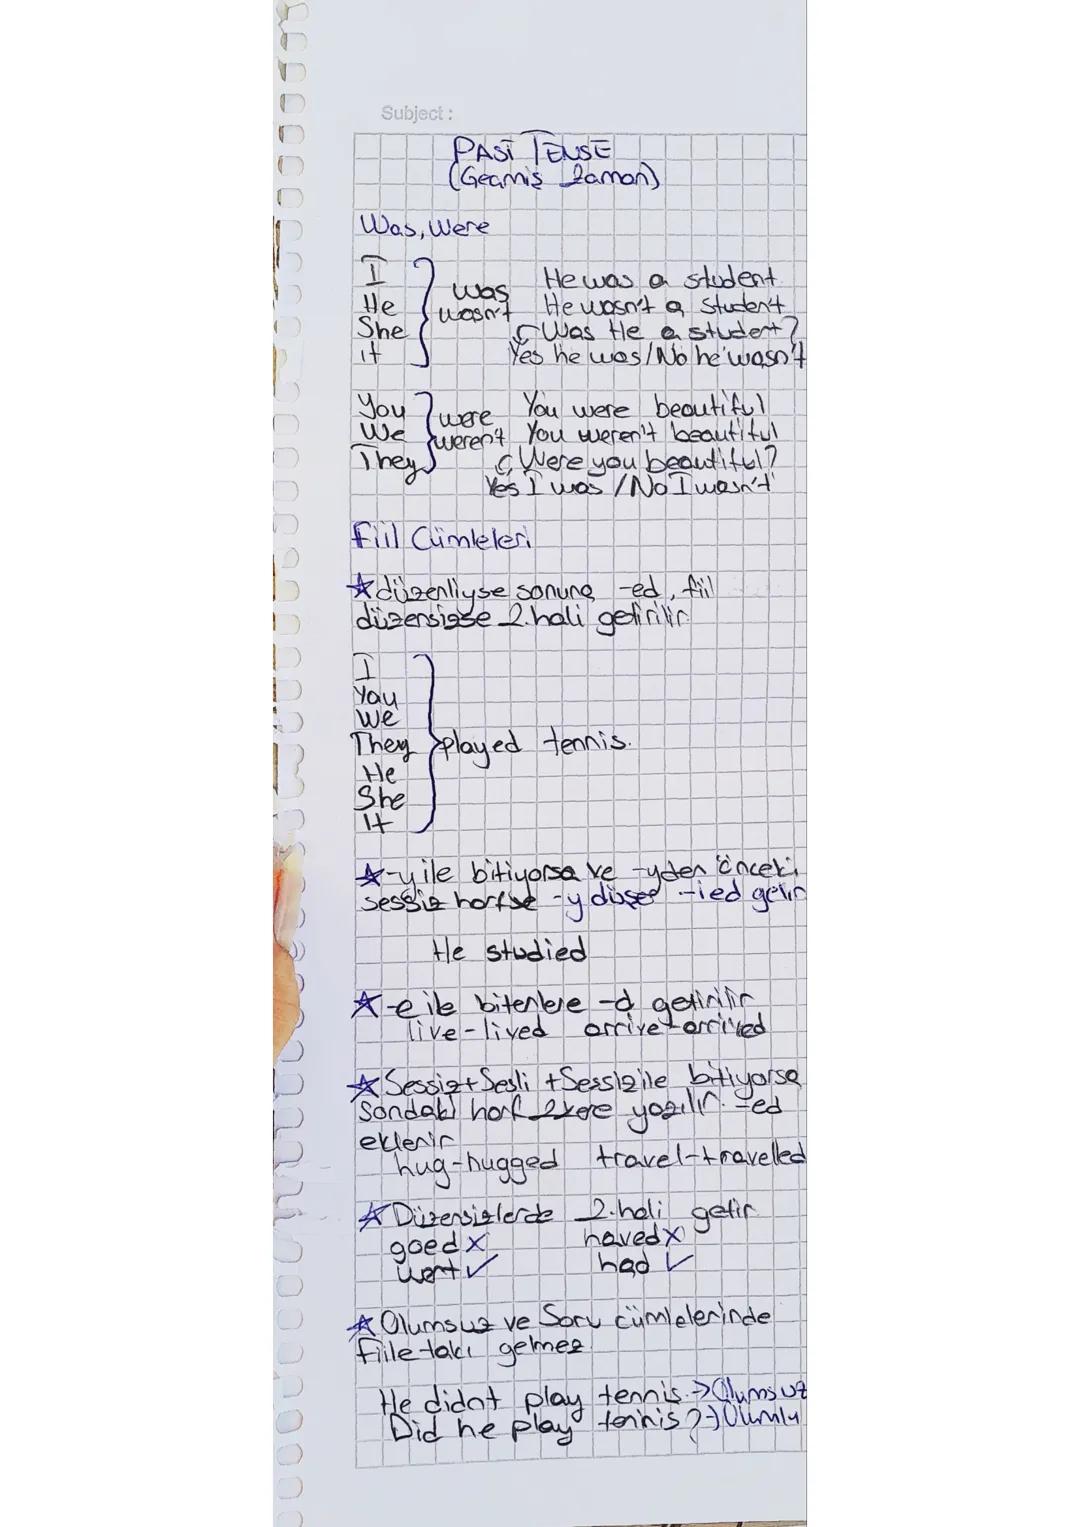 Subject :
PAST TENSE
(Geçmiş Zaman)
Was, Were
I
He
She
it
was
wasn't
He was a student
He wasn't a student
Was He a student?
Yes he was/No he wasn't
You
We
They
were
weren't
You were beautiful
You weren't beautiful
Were you beautiful?
Yes I was /No I wasn't
Fiil Cümleleri
☆düzenliyse sonuna -ed, fiil
düzensizse 2.hali getirilir.
I
You
We
They
He
She
It
played tennis.
☆-y ile bitiyorsa ve -yden önceki
sessiz harfse -y düşer -ied gelir
He studied
☆-e ile bitenlere -d getirilir
live-lived arrive-arrived
☆Sessiz+Sesli+Sessizile bitiyorsa
Sondaki harf 2 kere yazılır. -ed
eklenir
hug-hugged travel-travelled
☆Düzensizlerde 2.hali getir
goed x haved x
went ✓ had ✓
☆Olumsuz ve Soru cümlelerinde
fiile takı gelmez.
He didnt play tennis.→Olumsuz
Did he play tennis?→Olumlu